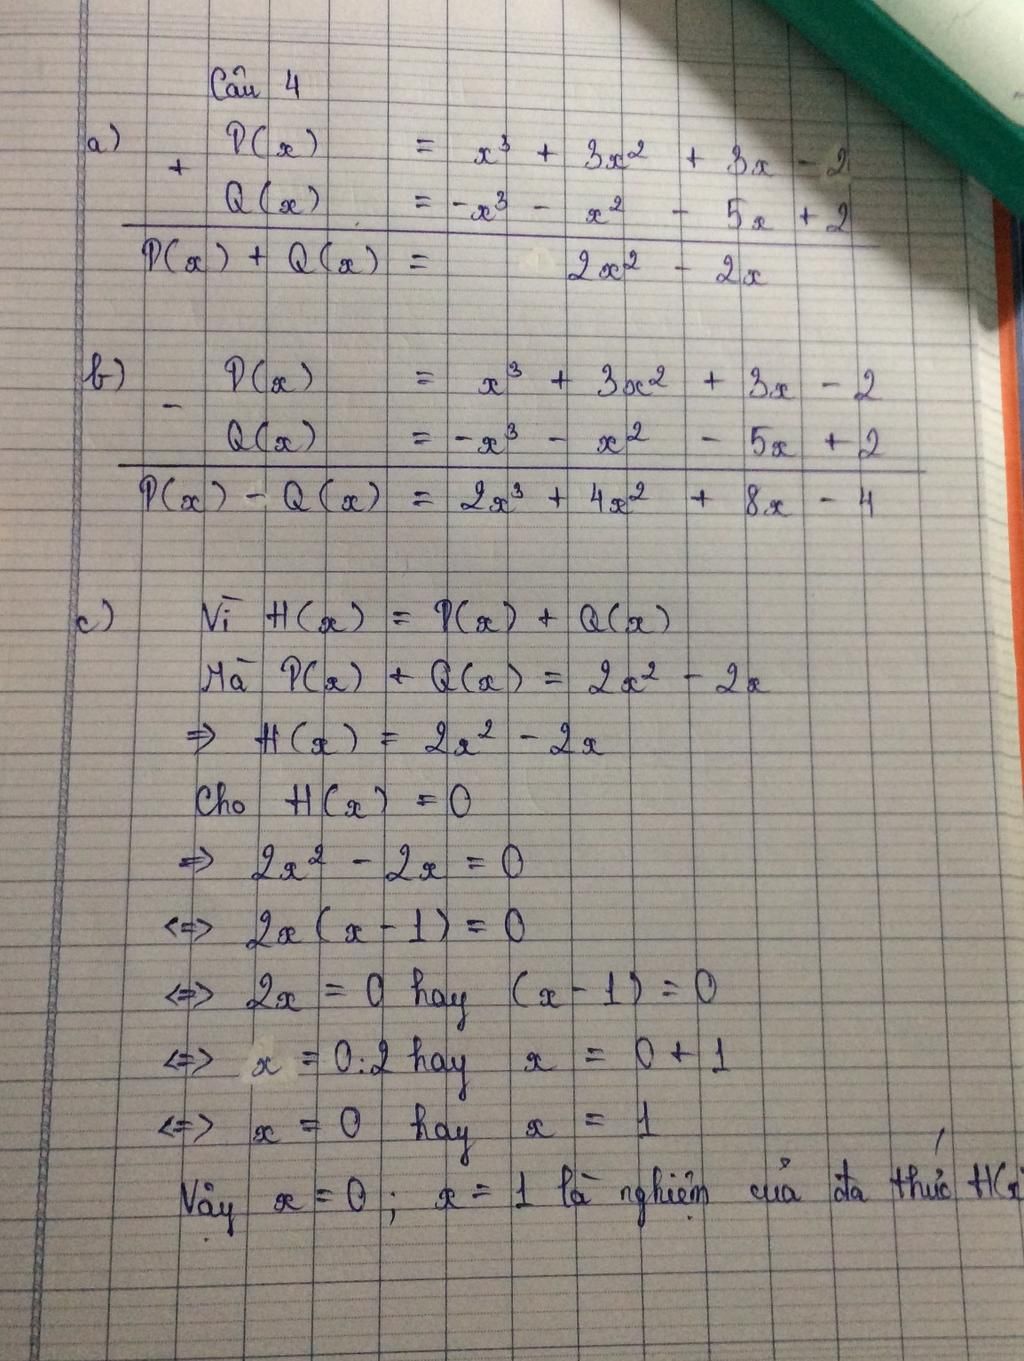 Câu 4
a) P(x) = x³ + 3x² + 3x - 2
+
Q(x) = -x³ - x² - 5x + 2
P(x) + Q(x) = 2x² - 2x
b) P(x) = x³ + 3x² + 3x - 2
-
Q(x) = -x³ - x² - 5x + 2
P(x) - Q(x) = 2x³ + 4x² + 8x - 4
c) Vì H(x) = P(x) + Q(x)
Mà P(x) + Q(x) = 2x² - 2x
⇒ H(x) = 2x² - 2x
Cho H(x) = 0
⇒ 2x² - 2x = 0
⇔ 2x(x - 1) = 0
⇔ 2x = 0 hay (x - 1) = 0
⇔ x = 0:2 hay x = 0 + 1
⇔ x = 0 hay x = 1
Vậy x = 0 ; x = 1 là nghiệm của đa thức H(x